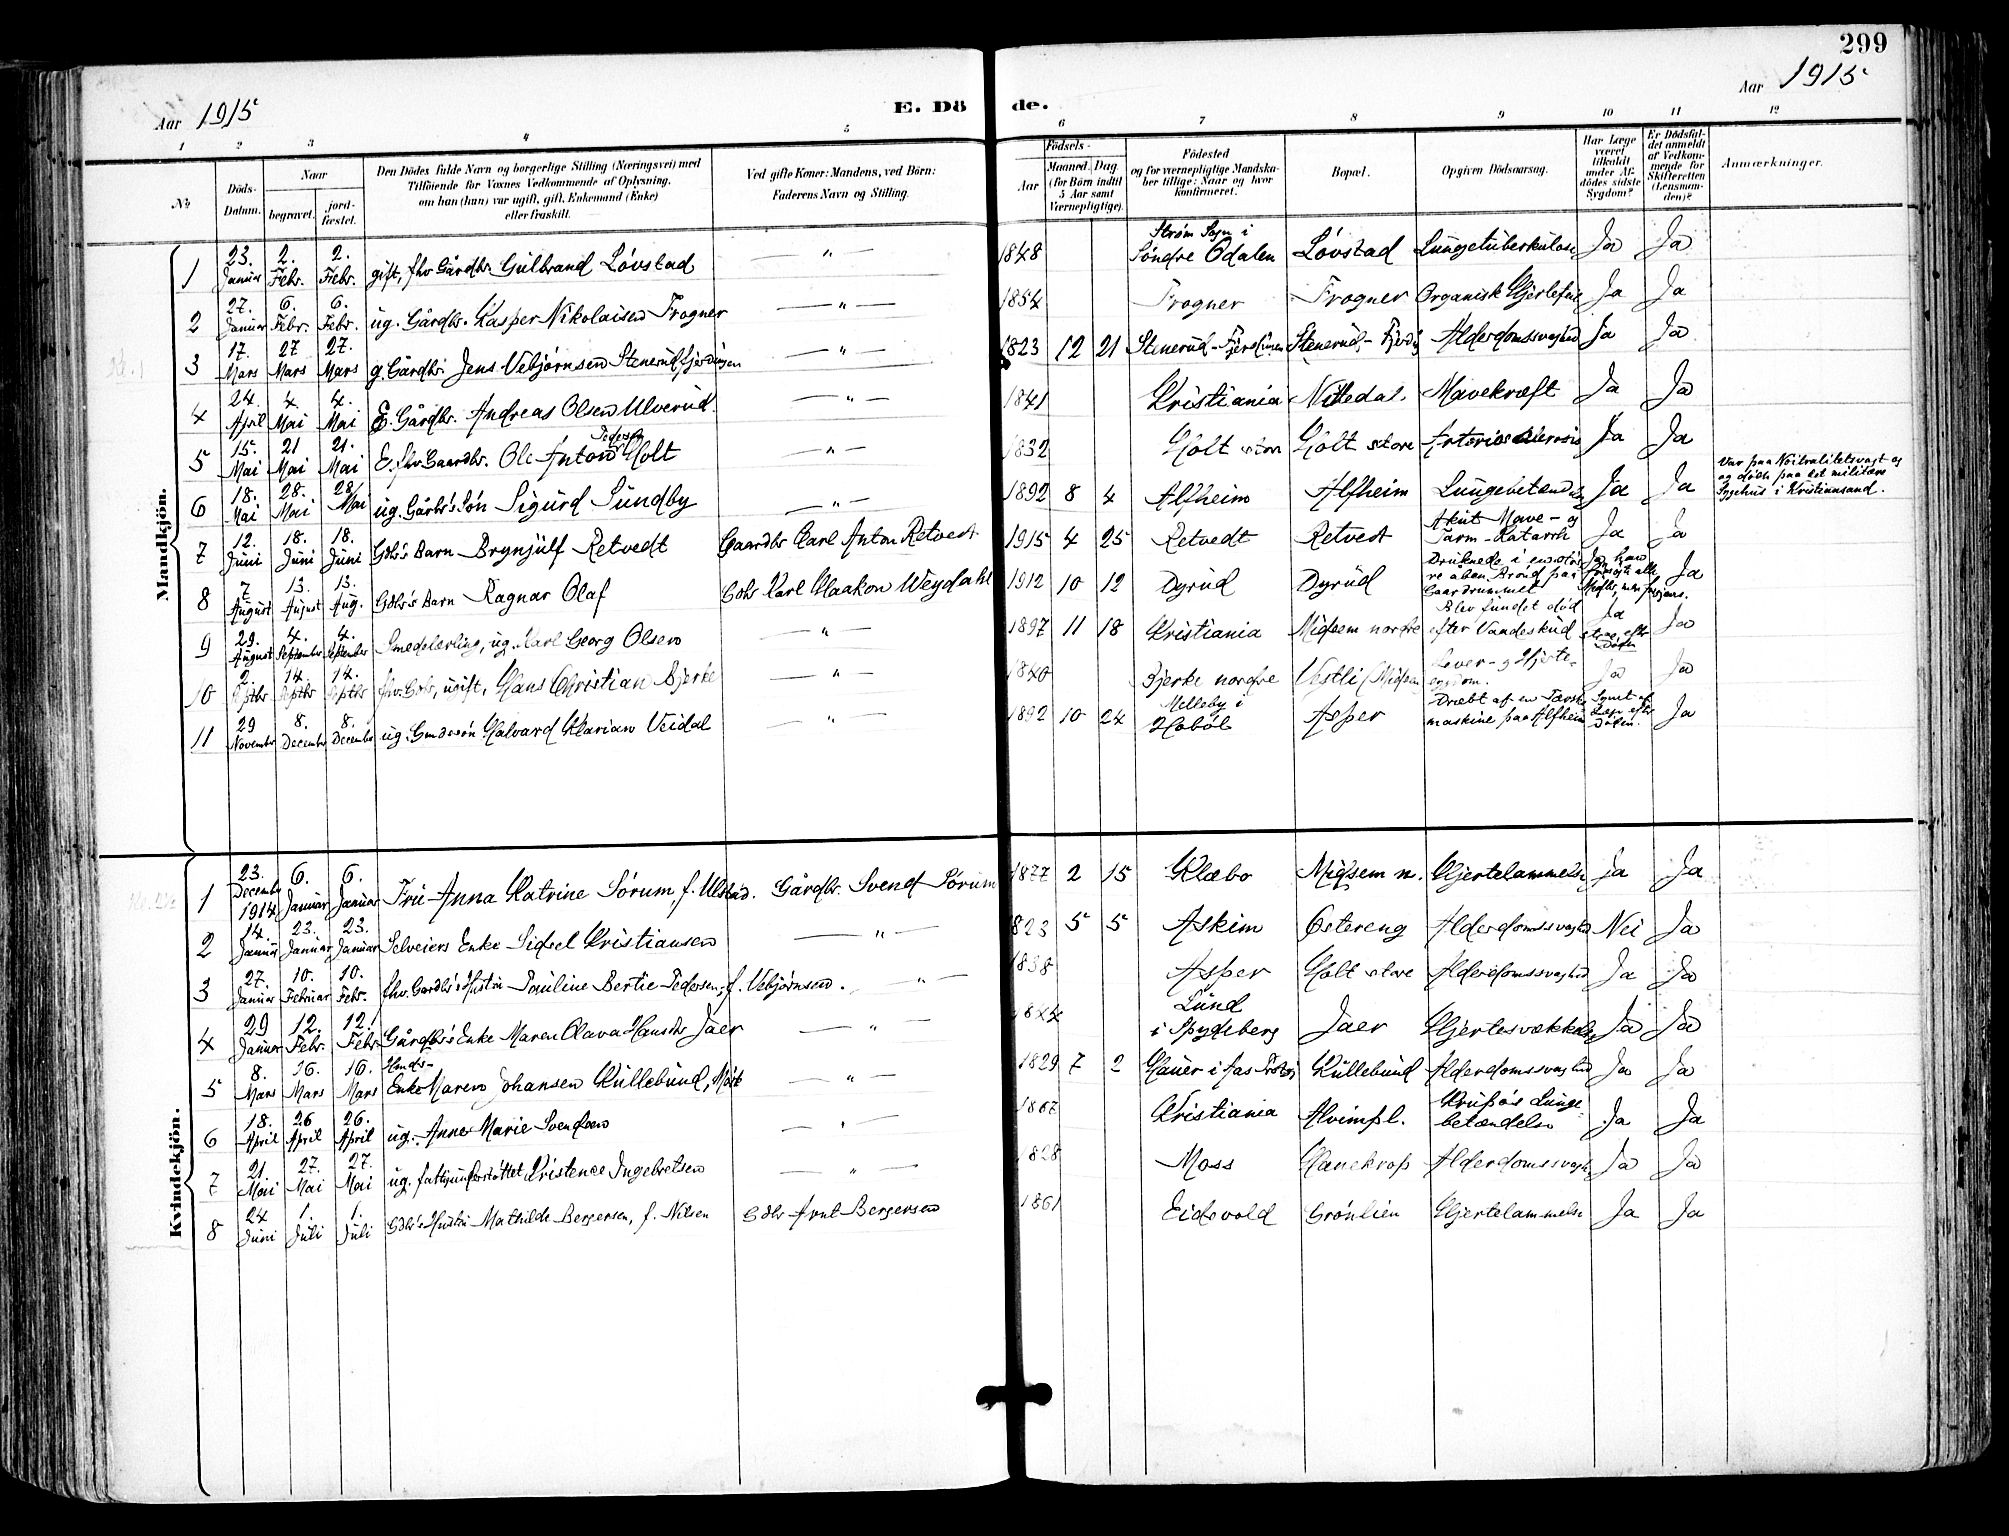 299
Aar 1915
E. Dö
de.
Aar 1915
1 2 3 4 5 6 7 8 9 10 11 12
No.
Döds-Datum.
Naar
begravet.
jord-fæstet.
Den Dödes fulde Navn og borgerlige Stilling (Næringsvei) med
Tilföiende for Voxnes Vedkommende af Oplysning,
om han (hun) var ugift, gift, Enkemand (Enke)
eller fraskilt.
Ved gifte Koner: Mandens, ved Börn:
Faderens Navn og Stilling.
Födsels-
Aar
Maaned. Dag
(for Börn indtil
5 Aar samt
Værnepligtige).
Födested
og for værnepligtige Mandska-
ber tillige: Naar og hvor
konfirmeret.
Bopæl.
Opgiven Dödsaarsag.
Har Læge
været
tilkaldt
under Af-
dödes sidste
Sygdom?
Er Dödsfal-
det anmeldt
af Vedkom-
mende for
Skifteretten
(Lensman-
den)?
Anmærkninger.
Mandkjön.
1 23. Januar 2. Febr. 2. Febr. gift, fhv. Gårdbr. Gulbrand Lóvstad — " — 1848 Strøm Sogn i Söndre Odalen Lóvstad Lungetuberkulose Ja Ja
2 27. Januar 6. Febr. 6. Febr. ug. Gårdbr. Kasper Nikolaisen Frogner — " — 1854 Frogner Frogner Organisk Hjertefeil Ja Ja
3 17. Mars 27 Mars 27. Mars g. Gårdbr. Jens Vebjørnsen Stenerud, Fjerdingen — " — 1823 12 21 Stenerud - Fjerdingen Stenerud, - Fjerding Alderdomssvaghed Ja Ja
4 24. April 4. Mai 4. Mai E. Gårdbr. Andreas Olsen Ulverud. — " — 1841 Kristiania Nittedal. Mavekræft Ja Ja
5 15. Mai 21 Mai 21. Mai E. fhv. Gaardbr. Ole Anton Pedersen Holt — " — 1832 Holt store Holt store Arteriosclerosis Ja Ja
6 18. Mai 28. Mai 28/ Mai ug. Gårbr's Sön Sigurd Sundby — " — 1892 8 4 Alfheim Alfheim Lungebetændelse Ja Ja Var paa Nøitralitetsvagt og
og döde paa det militære
Sygehus i Kristiansand.
7 12. Juni 18. Juni 18. Juni Gdbr's Barn Brynjulf Retvedt Gaardbr Carl Anton Retvedt 1915 4 25 Retvedt Retvedt Akut Mave- og
Tarm-Katarrh Ja Ja
8 7 August 13. August 13. Aug. Gdbr's Barn Ragnar Olaf Gdbr Karl Haakon Weydahl 1912 10 12 Dyrud Dyrud Druknede i en større
aaben Brönd paa
Gaardrummet Ja
9 29. August 4. September 4. September Smedelærling, ug. Karl Georg Olsen — " — 1897 11 18 Kristiania Midsem nordre Blev fundet död
efter Vaadeskud Ja
strax efter
Döden Ja
10 2. Septbr 14. Septbr 14. Septbr fhv. Gdbr, ugift, Hans Christian Bjerke — " — 1840 Bjerke nordre Vestli (Midsem Lever- og Hjerte-
sygdom. Ja Ja
11 29 November 8. December 8. December ug. Gmdssön Halvard Marian Veidal — " — 1892 10 24 Melleby i
Hobøl Asper Dræbt af en Tærske-
maskine paa Alfheim Synet af
Læge efter
Döden. Ja
Kvindekjön.
1 23. December 1914 6. Januar 6. Januar Fru Anna Katrine Sørum, f. Ulstad. Gårdbr. Svend Sørum 1877 2 15 Klæbo Midsem n. Hjertelammelse Ja Ja
2 14. Januar 23. Januar 23. Januar Selveiers Enke Sidsel Kristiansen — " — 1823 5 5 Askim Østereng Alderdomssvaghed Nei Ja
3 27. Januar 10. Februar 10. Febr. fhv. Gardbr's Hustru Pauline Bertie Pedersen, f. Vebjørnsen. " — 1838 Asper Holt store Alderdomssvaghed Ja Ja
4 29 Januar 12. Febr. 12. Febr Gårdbr's Enke Maren Olava Hansdtr Jaer — " — 1844 Lund
i Spydeberg Jaer Hjertesvækkelse Ja Ja
5 8. Mars 16. Mars 16. Mars Gmds-
Enke Maren Johansen Kullebund, Mörk — " — 1829 7 2 Hauer i Aas Kullebund Alderdomssvaghed Ja Ja
6 18. April 26 April 26. April ug. Anne Marie Svendsen — " — 1867 Kristiania Alvimpl. Krupös Lunge-
betændelse Ja Ja
7 21. Mai 27. Mai 27. Mai ug. fattigunderstøttet Kristence Ingebretsen — " — 1828 Moss Hanekrop Alderdomssvagh. Ja Ja
8 24 Juni 1. Juli 1. Juli Gdbr's Hustru Mathilde Bergersen, f. Nilsen Gdbr Arnt Bergersen 1861 Eidsvold Grönlien Hjertelammelse Ja Ja